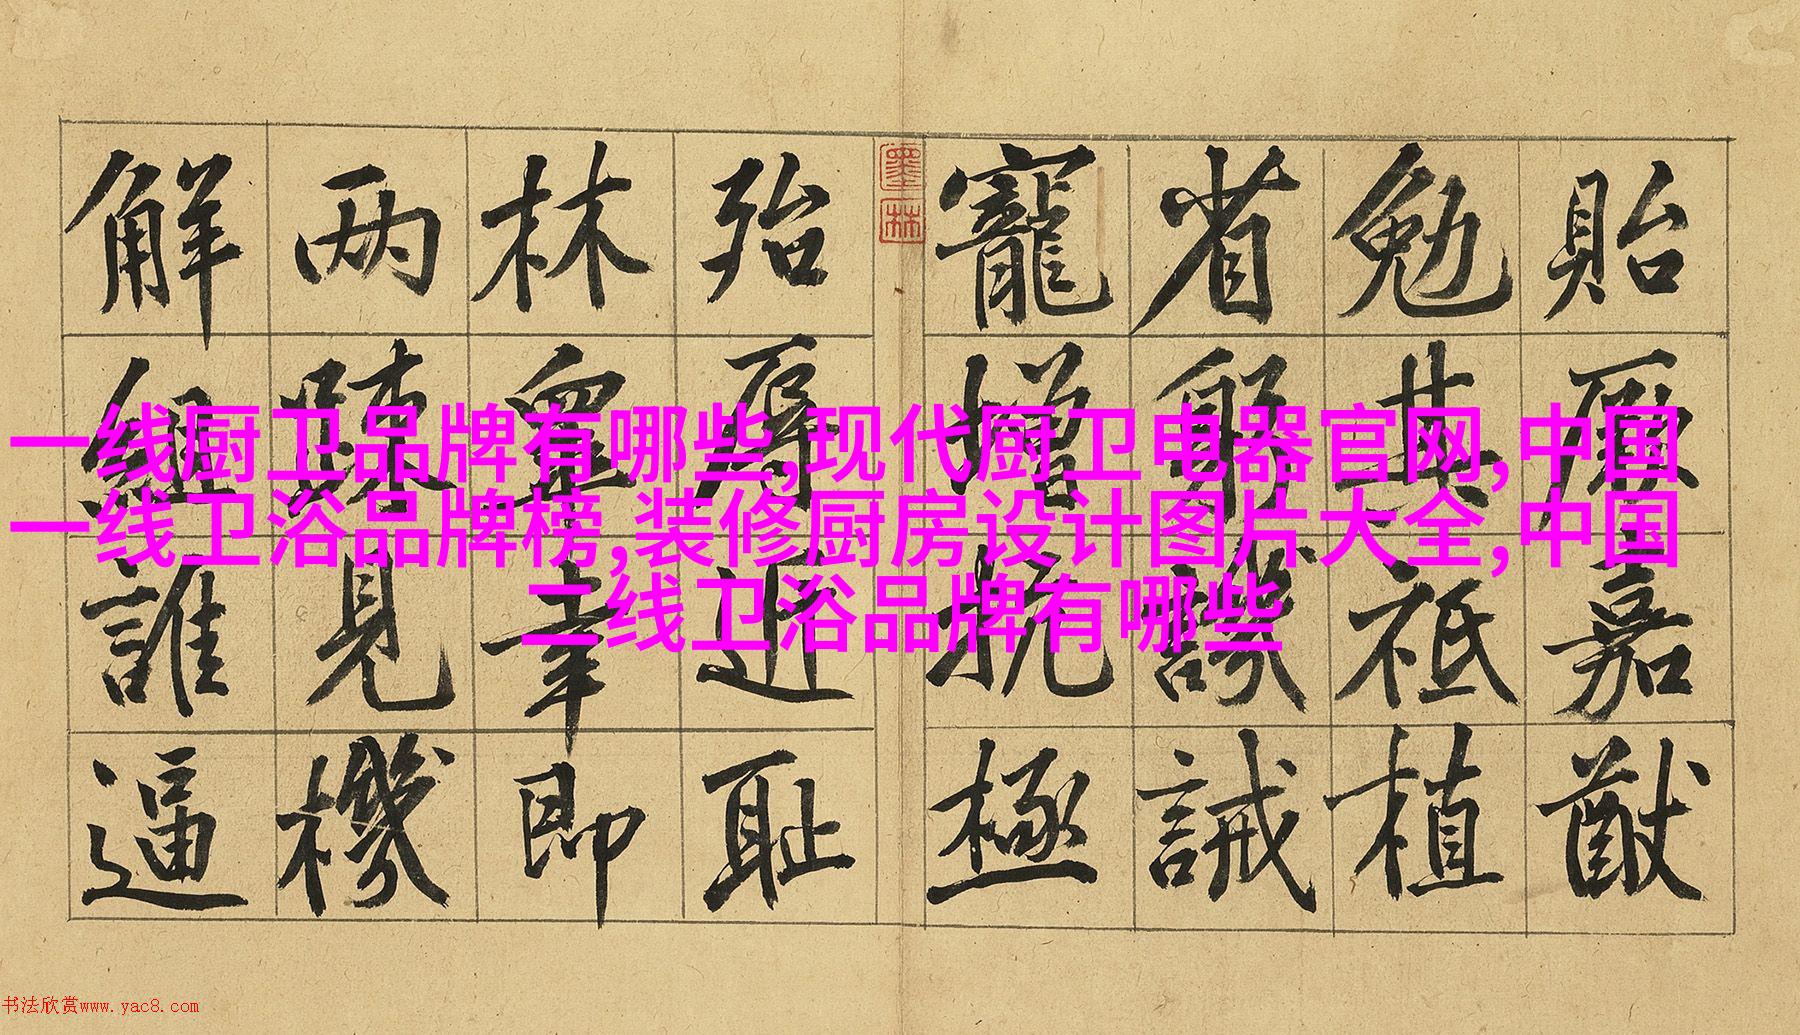 貽厥嘉猷
勉其祗植
省躬譏誡
寵增抗極
墨林
殆辱近耻
林皋幸即
两疎見機
解組誰逼
一线厨卫品牌有哪些,现代厨卫电器官网,中国
一线卫浴品牌榜,装修厨房设计图片大全,中国
二线卫浴品牌有哪些
书法欣赏www.yac8.com